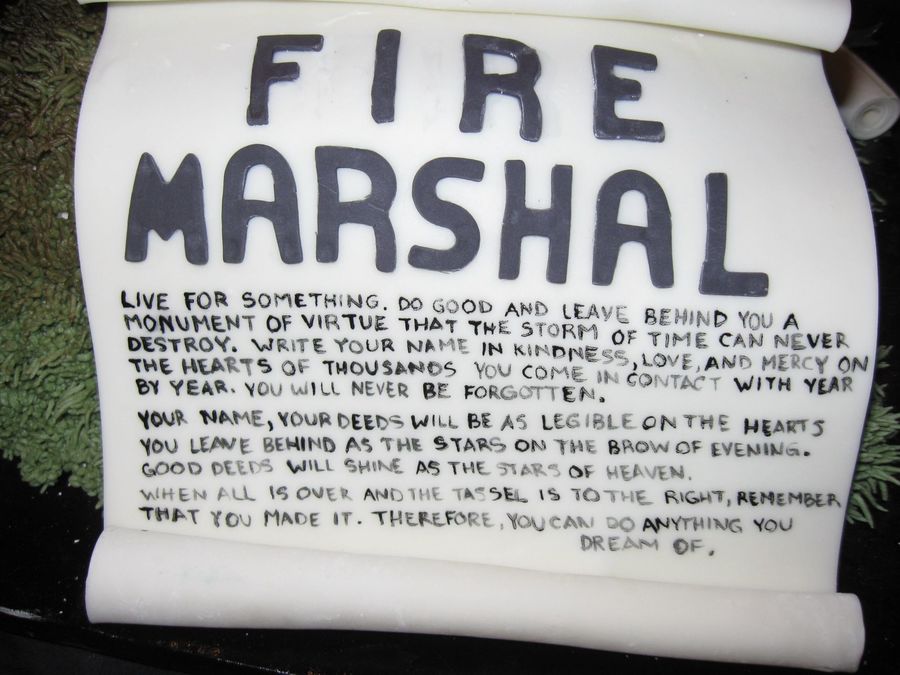 FIRE
MARSHAL
LIVE FOR SOMETHING. DO GOOD AND LEAVE BEHIND YOU A
MONUMENT OF VIRTUE THAT THE STORM OF TIME CAN NEVER
DESTROY. WRITE YOUR NAME IN KINDNESS, LOVE, AND MERCY ON
THE HEARTS OF THOUSANDS YOU COME IN CONTACT WITH YEAR
BY YEAR. YOU WILL NEVER BE FORGOTTEN.
YOUR NAME, YOUR DEEDS WILL BE AS LEGIBLE ON THE HEARTS
YOU LEAVE BEHIND AS THE STARS ON THE BROW OF EVENING.
GOOD DEEDS WILL SHINE AS THE STARS OF HEAVEN.
WHEN ALL IS OVER AND THE TASSEL IS TO THE RIGHT, REMEMBER
THAT YOU MADE IT. THEREFORE, YOU CAN DO ANYTHING YOU
DREAM OF.